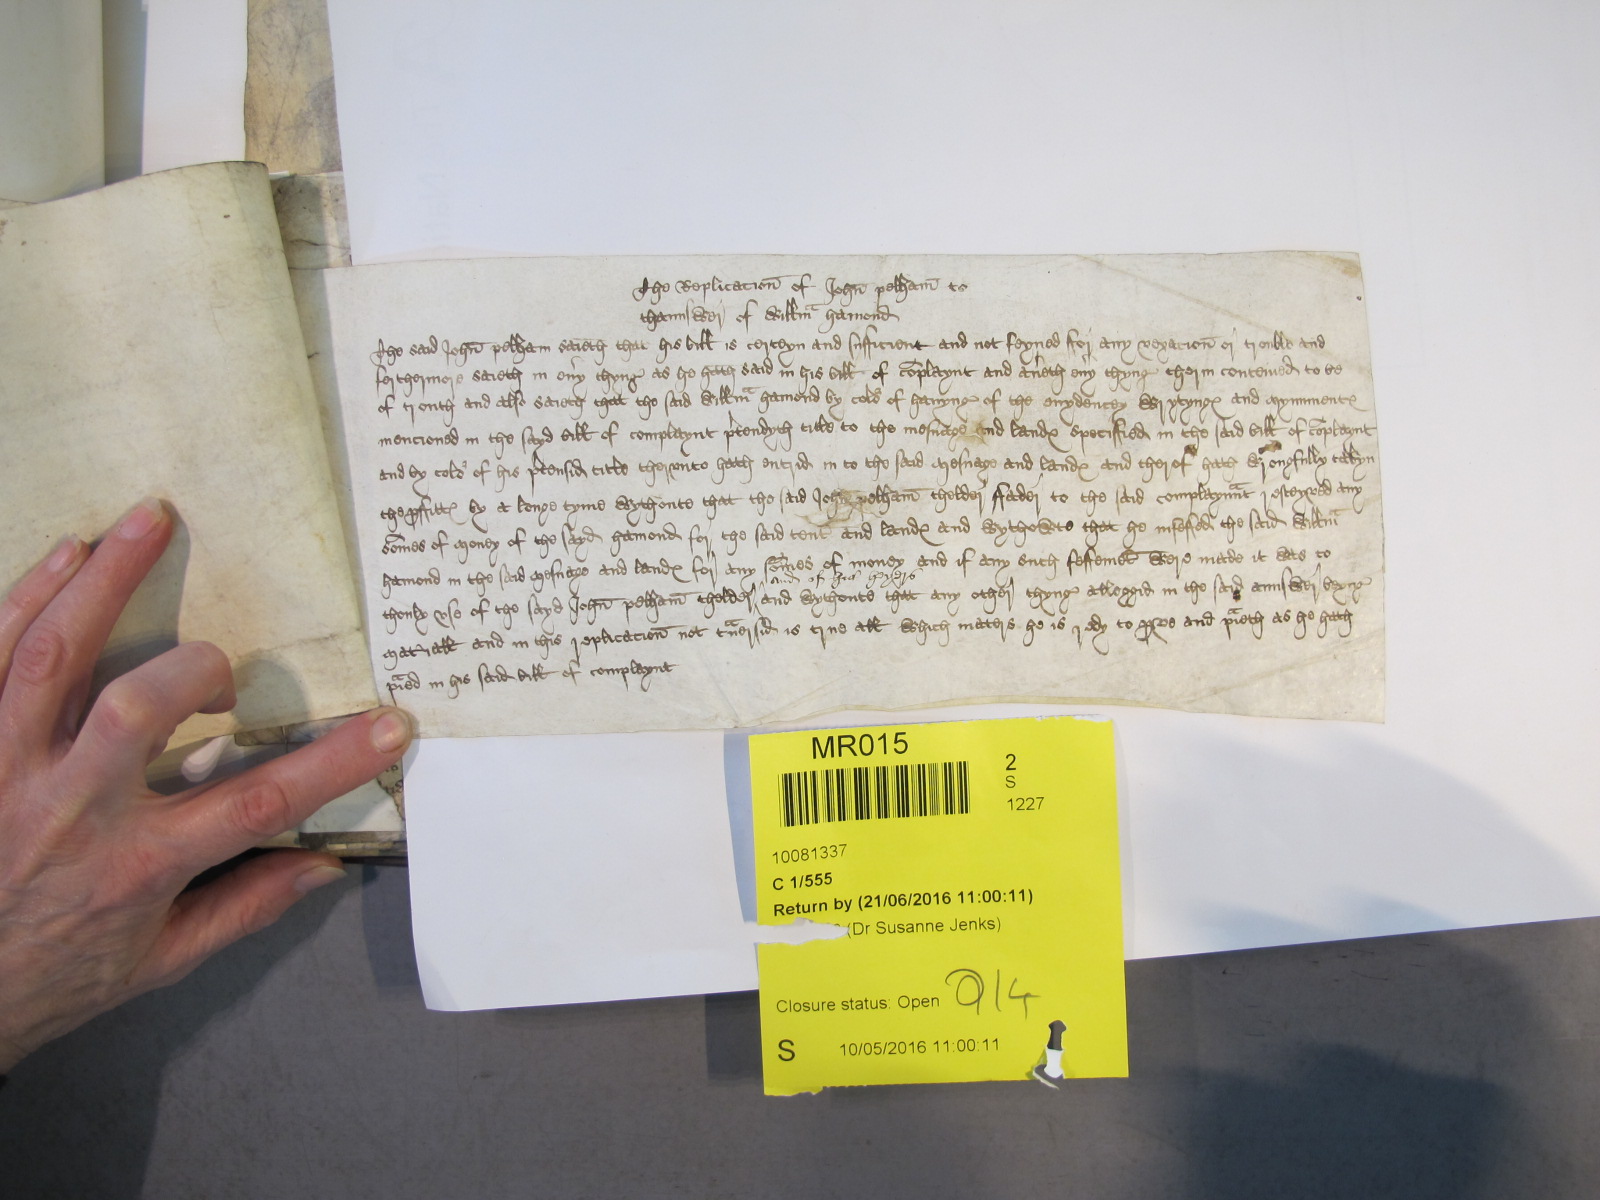 The Replicacion of John pelham to
thanswer of Willm hamond
The said John pelham saieth that his bill is certeyn and sufficient and not feyned for any vexacion or trouble and
forthermore saieth in eny thyng as he hath said in his bill of complaynt and eny thyng therin conteined to be
of trouth and also saieth that the said Willm hamond by colo of havyng of the evydences wrytyng and mynment
mencioned in the sayd bill of complaynt ptendyth title to the mesuage and land specified in the said bill of complaynt
and by colo of his ptensid title therunto hath entrid in to the said mesuage and land and therof hath wrongfully takyn
the pffitt by a longe tyme wythoute that the said John pelham thelder ffader to the said complaynt resceyved any
somes of money of the sayd hamond for the said tent and land and wythowte that he infeffed the said Willm
hamond in the said mesuage and land for any somes of money and if any such feffement were made it was to
thonly use of the sayd John pelham thelder and of his heyrs and wythoute that any other thyng allegid in the said answer beyng
matiall and in this replicacion not tavsid is true all which maters he is redy to pve and pieth as he hath
pied in his said bill of complaynt
MR015
2
S
1227
10081337
C 1/555
Return by (21/06/2016 11:00:11)
(Dr Susanne Jenks)
Closure status: Open 914
S 10/05/2016 11:00:11